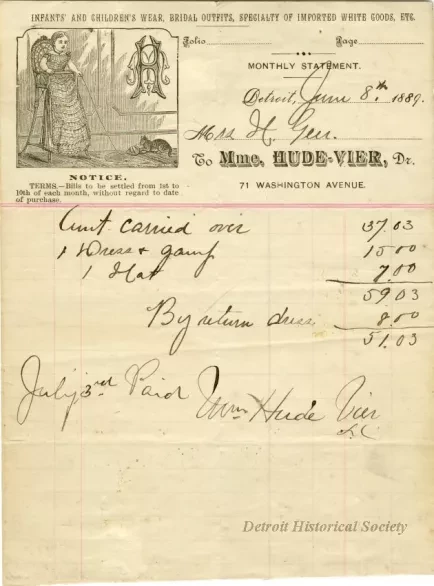 INFANTS' AND CHILDREN'S WEAR, BRIDAL OUTFITS, SPECIALTY OF IMPORTED WHITE GOODS, ETC.
Folio Page
MONTHLY STATEMENT.
Detroit, June 8th 1889.
Mrs H. Geer.
To Mme. HUDE-VIER, Dr.
71 WASHINGTON AVENUE.
NOTICE.
TERMS.—Bills to be settled from 1st to
10th of each month, without regard to date
of purchase.
Amt carried over 37.03
1 Dress & gamp 15.00
1 Hat 7.00
59.03
By return dress 8.00
51.03
July 3rd Paid Mme Hude Vier
Detroit Historical Society